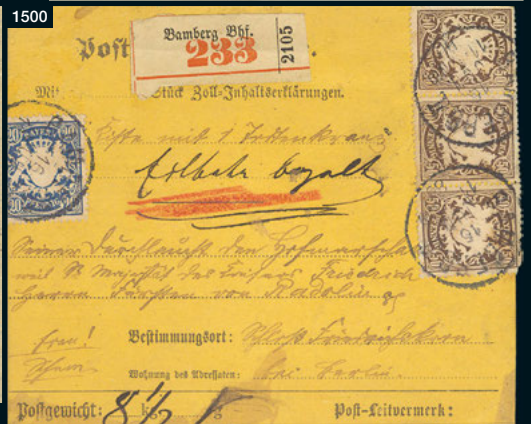 1500
Bamberg Bhf.
233
2105
Post
Mit Stück Zoll-Inhaltserklärungen.
Kiste mit 1 Totenkranz
Eilbote bezahlt
20 BAYERN 20
Seiner Durchlaucht den Hofmarschall
weil. Sr. Majestät des Kaisers Friedrich
Herrn Fürsten von Radolin
frei!
Bestimmungsort: Schloß Friedrichskron
Wohnung des Adressaten: bei Berlin.
Postgewicht: 8 1/2 kg g Post-Leitvermerk: